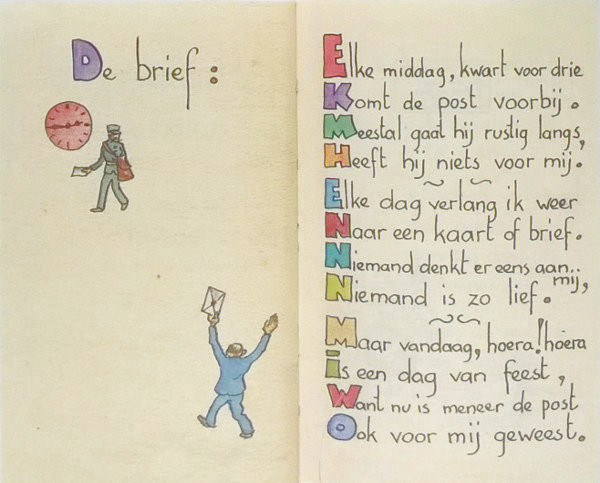 De brief:
Elke middag, kwart voor drie
Komt de post voorbij.
Meestal gaat hij rustig langs,
Heeft hij niets voor mij.
Elke dag verlang ik weer
Naar een kaart of brief.
Niemand denkt er eens aan..
mij,
Niemand is zo lief.
Maar vandaag, hoera! hoera
is een dag van feest,
Want nu is meneer de post
Ook voor mij geweest.